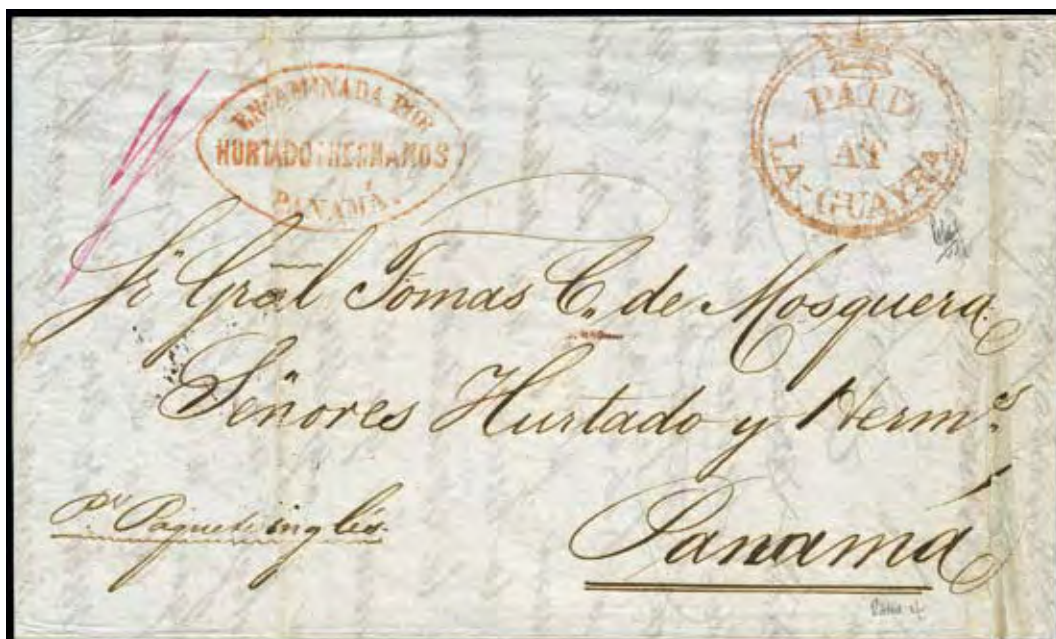 ENCAMINADA POR
HURTADO Y HERMANOS
PANAMÁ.
PAID
AT
LA-GUAYRA
Sr Gral Tomas C. de Mosquera.
Señores Hurtado y Hermos
Pr Paquete inglés.
Panamá